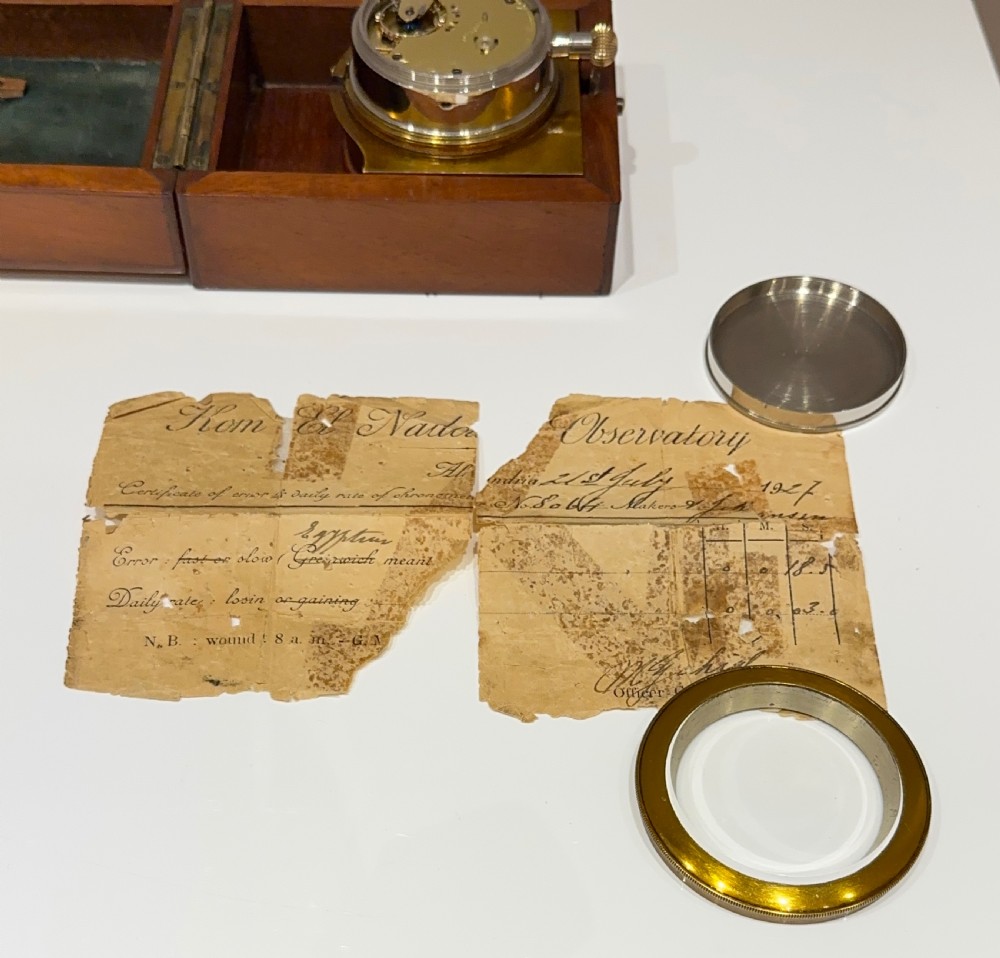 Kom El Nado Observatory
Al ndria 21st July 1927
Certificate of error & daily rate of chronome No. 8064 Makers A. Johannsen
H. M. S.
Egyptian
Error : fast or slow ( Greenwich mean 0 0 18.5
Daily rate : losin or gaining 0 0 03.0
N. B. : wound 8 a. m. - G. M
Officer